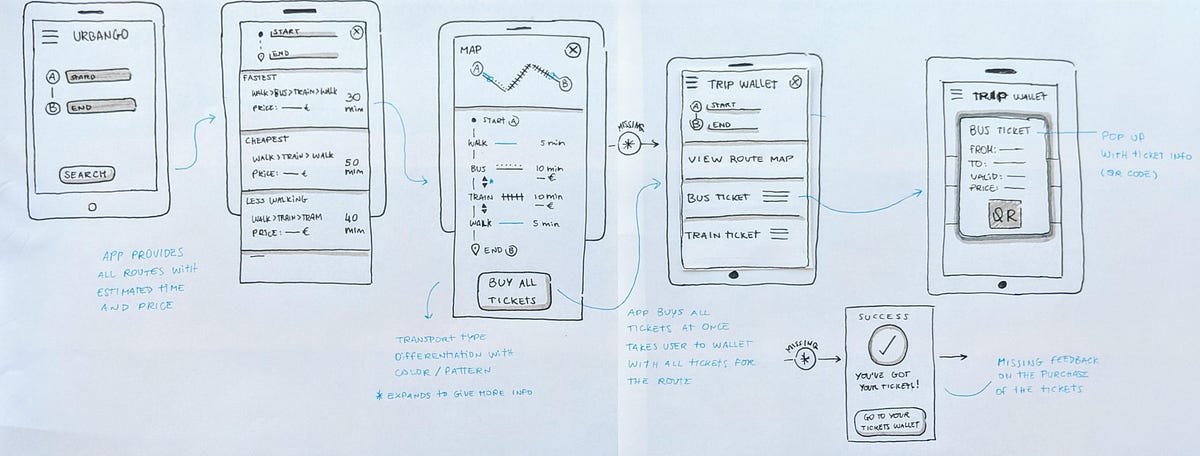 URBANGO
A START
B END
SEARCH
APP PROVIDES
ALL ROUTES WITH
ESTIMATED TIME
AND PRICE
START
X
END
FASTEST
WALK>BUS>TRAIN>WALK
PRICE: — €
30
min
CHEAPEST
WALK>TRAIN>WALK
PRICE: — €
50
min
LESS WALKING
WALK>TRAIN>TRAM
PRICE: — €
40
min
MAP
X
A
B
START A
WALK 5 min
BUS 10 min
— €
*
TRAIN 10 min
— €
WALK 5 min
END B
BUY ALL
TICKETS
TRANSPORT TYPE
DIFFERENTIATION WITH
COLOR / PATTERN
* EXPANDS TO GIVE MORE INFO
MISSING
*
TRIP WALLET
X
A START
B END
VIEW ROUTE MAP
BUS TICKET
TRAIN TICKET
APP BUYS ALL
TICKETS AT ONCE
TAKES USER TO WALLET
WITH ALL TICKETS FOR
THE ROUTE
TRIP WALLET
BUS TICKET
FROM: —
TO: —
VALID: —
PRICE: —
QR
POP UP
WITH TICKET INFO
(QR CODE)
MISSING
*
SUCCESS
YOU'VE GOT
YOUR TICKETS!
GO TO YOUR
TICKETS WALLET
MISSING FEEDBACK
ON THE PURCHASE
OF THE TICKETS